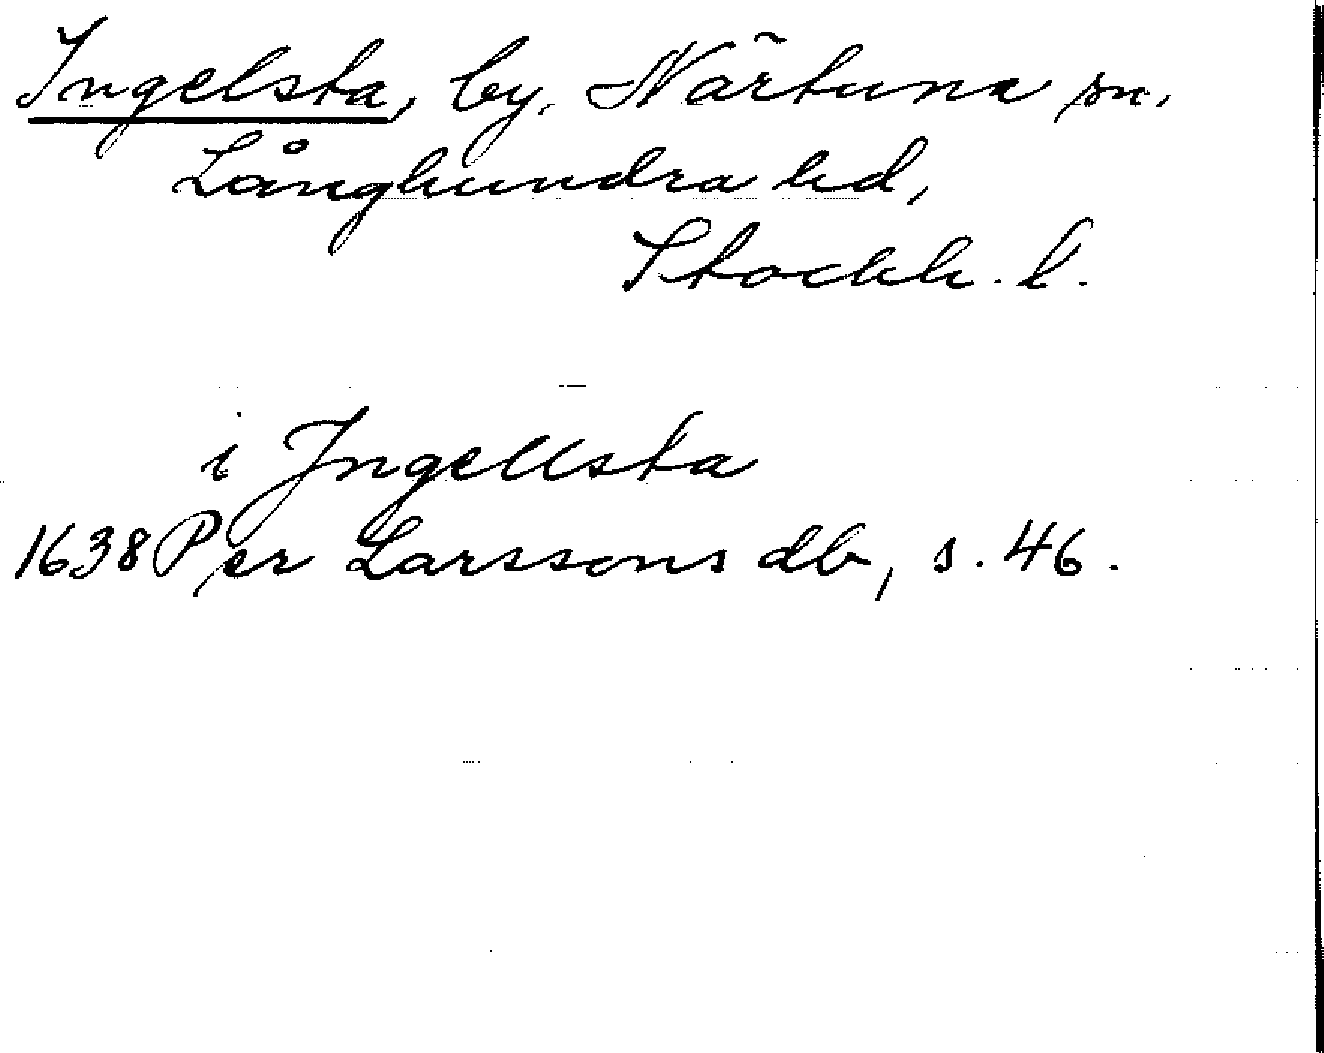 Ingelsta, by, Närtuna sn.
Långhundra hd,
Stockh. l.
i Ingellsta
1638 Per Larssons db, s. 46.